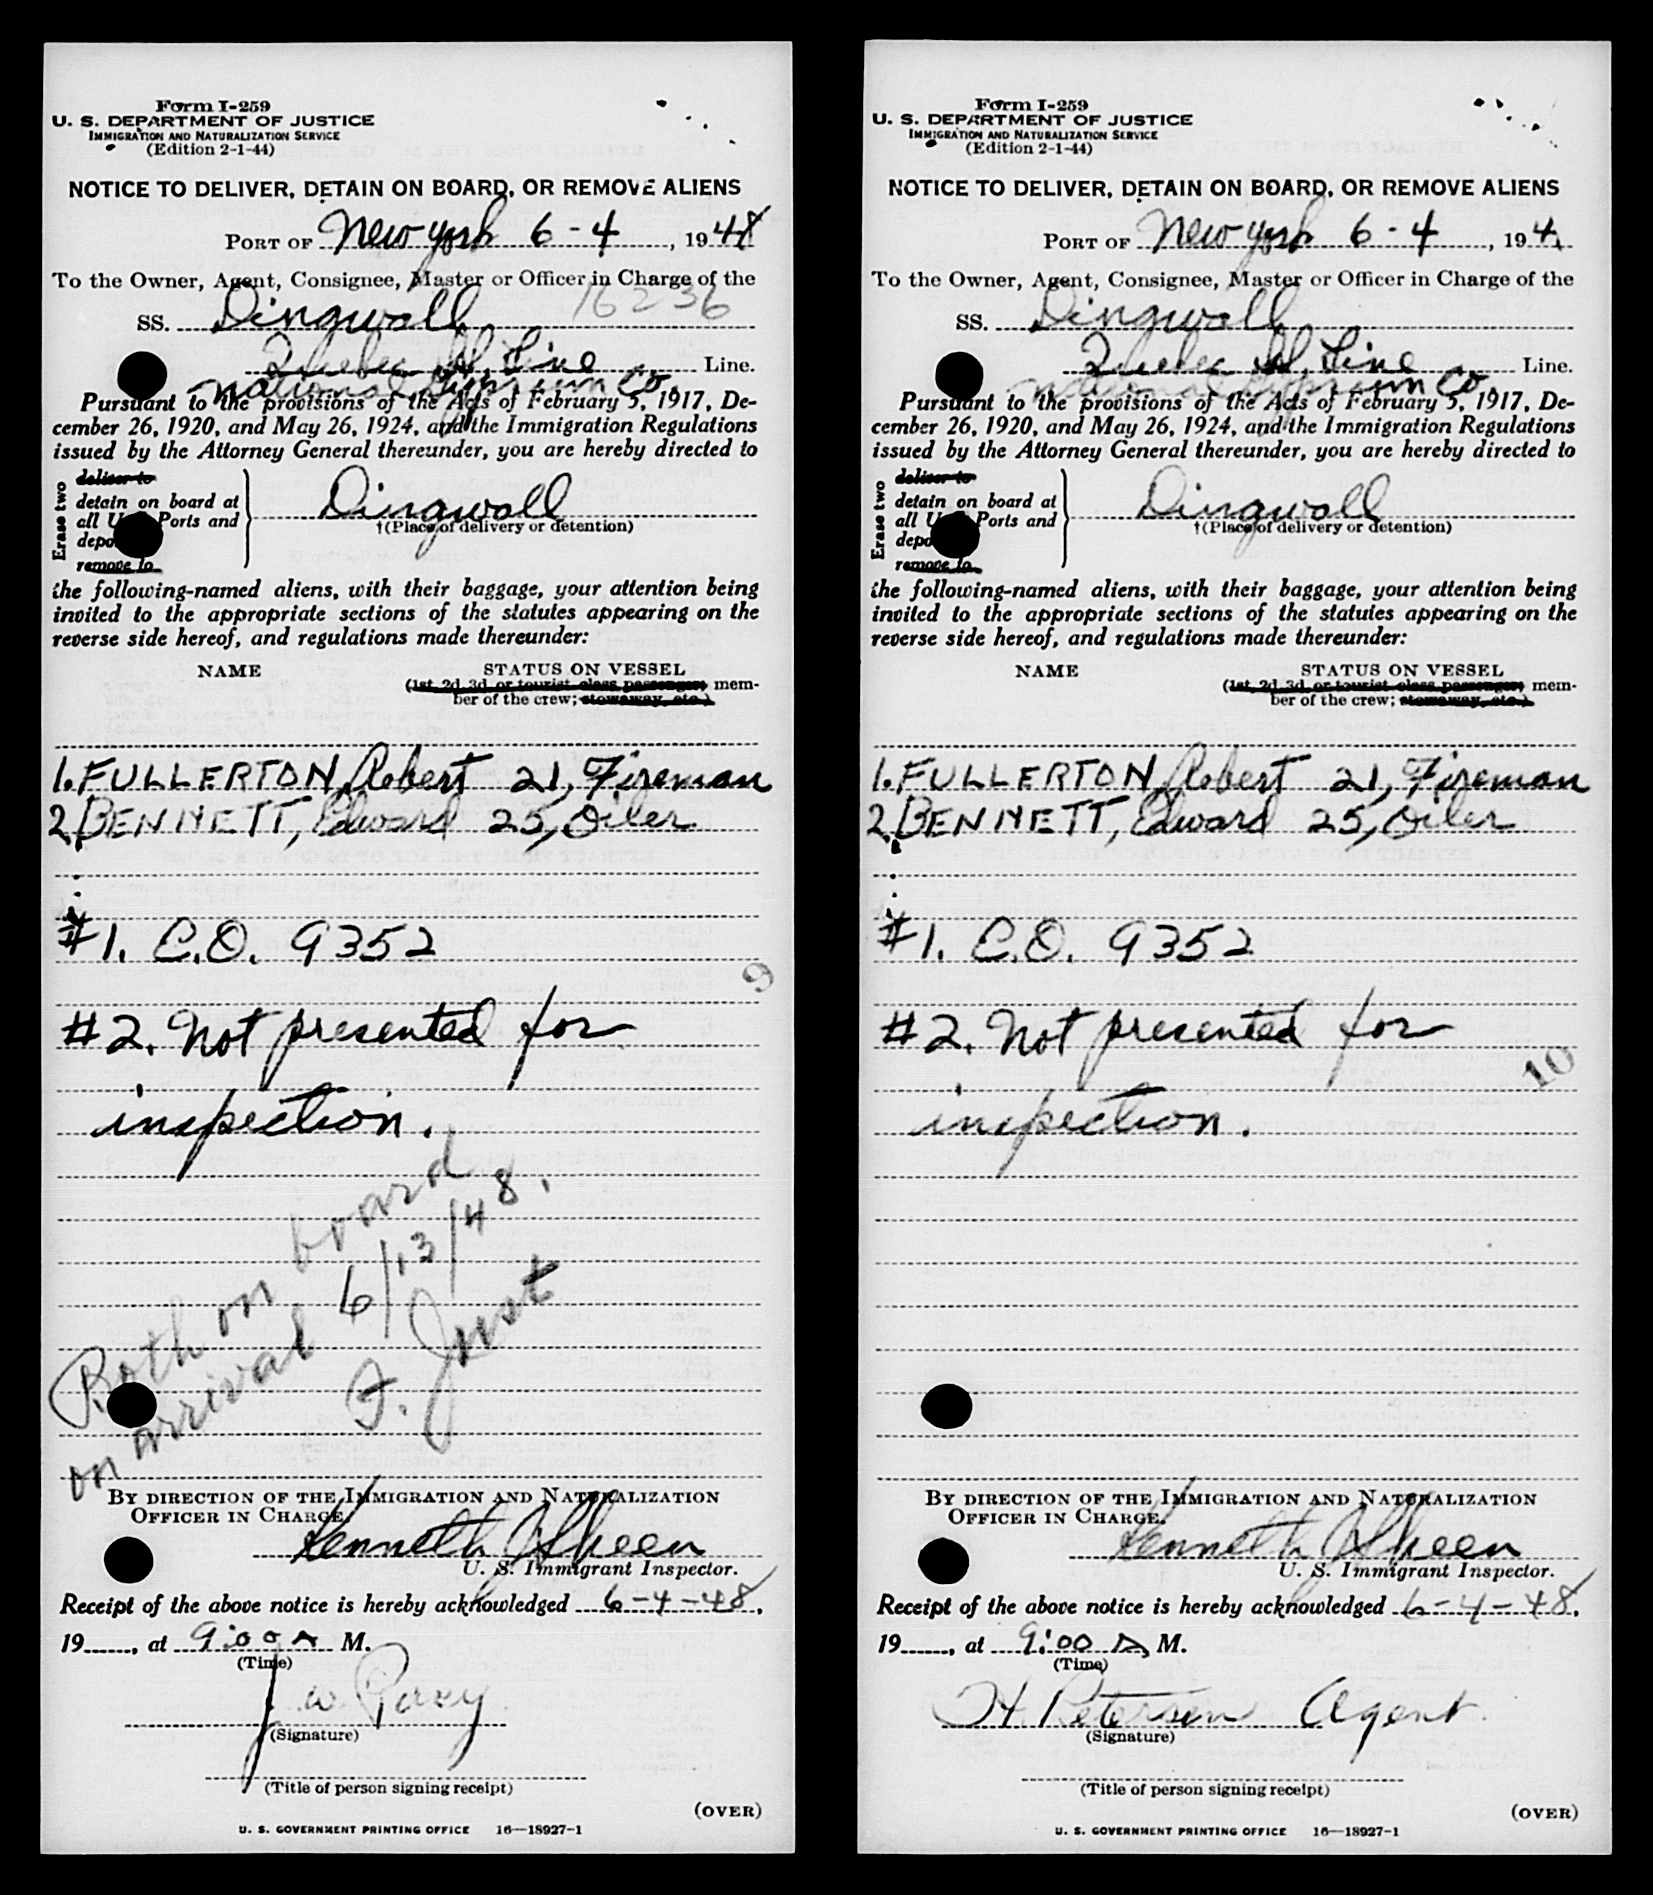 Form I-259
U. S. DEPARTMENT OF JUSTICE
IMMIGRATION AND NATURALIZATION SERVICE
(Edition 2-1-44)
NOTICE TO DELIVER, DETAIN ON BOARD, OR REMOVE ALIENS
PORT OF New York 6-4, 1948
To the Owner, Agent, Consignee, Master or Officer in Charge of the
16236
SS. Dingwall
Quebec SS. Line Line.
National Gypsum Co.
Pursuant to the provisions of the Acts of February 5, 1917, De-
cember 26, 1920, and May 26, 1924, and the Immigration Regulations
issued by the Attorney General thereunder, you are hereby directed to
Erase two
deliver to
detain on board at
all U. Ports and
depo
remove to
Dingwall
†(Place of delivery or detention)
the following-named aliens, with their baggage, your attention being
invited to the appropriate sections of the statutes appearing on the
reverse side hereof, and regulations made thereunder:
NAME STATUS ON VESSEL
(1st, 2d, 3d, or tourist class passenger; mem-
ber of the crew; stowaway, etc.)
1. FULLERTON, Robert 21, Fireman
2. BENNETT, Edward 25, Oiler
#1. C.O. 9352
9
#2. Not presented for
inspection.
Both on board
on arrival 6/13/48.
F. Just
BY DIRECTION OF THE IMMIGRATION AND NATURALIZATION
OFFICER IN CHARGE.
Kenneth J Skeen
U. S. Immigrant Inspector.
Receipt of the above notice is hereby acknowledged 6-4-48,
19, at 9:00 A M.
(Time)
J. W.
(Signature)
(Title of person signing receipt)
(OVER)
U. S. GOVERNMENT PRINTING OFFICE 16—18927-1
Form I-259
U. S. DEPARTMENT OF JUSTICE
IMMIGRATION AND NATURALIZATION SERVICE
(Edition 2-1-44)
NOTICE TO DELIVER, DETAIN ON BOARD, OR REMOVE ALIENS
PORT OF New York 6-4, 194
To the Owner, Agent, Consignee, Master or Officer in Charge of the
SS. Dingwall
Quebec SS. Line Line.
National Gypsum Co.
Pursuant to the provisions of the Acts of February 5, 1917, De-
cember 26, 1920, and May 26, 1924, and the Immigration Regulations
issued by the Attorney General thereunder, you are hereby directed to
Erase two
deliver to
detain on board at
all U. Ports and
depo
remove to
Dingwall
†(Place of delivery or detention)
the following-named aliens, with their baggage, your attention being
invited to the appropriate sections of the statutes appearing on the
reverse side hereof, and regulations made thereunder:
NAME STATUS ON VESSEL
(1st, 2d, 3d, or tourist class passenger; mem-
ber of the crew; stowaway, etc.)
1. FULLERTON, Robert 21, Fireman
2. BENNETT, Edward 25, Oiler
#1. C.O. 9352
#2. Not presented for
10
inspection.
BY DIRECTION OF THE IMMIGRATION AND NATURALIZATION
OFFICER IN CHARGE.
Kenneth J Skeen
U. S. Immigrant Inspector.
Receipt of the above notice is hereby acknowledged 6-4-48,
19, at 9:00 A M.
(Time)
H. Petersen Agent
(Signature)
(Title of person signing receipt)
(OVER)
U. S. GOVERNMENT PRINTING OFFICE 16—18927-1